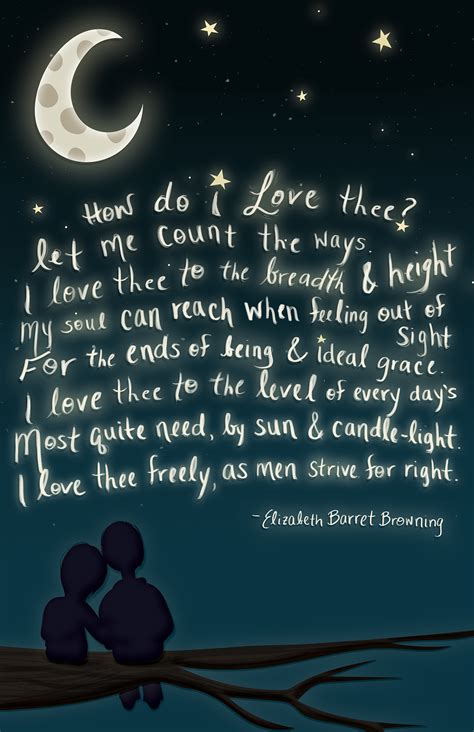 How do i Love thee?
let me count the ways.
I love thee to the breadth & height
My soul can reach when feeling out of
Sight
For the ends of being & ideal grace.
I love thee to the level of every day's
Most quite need, by sun & candle-light.
I love thee freely, as men strive for right.
-Elizabeth Barret Browning